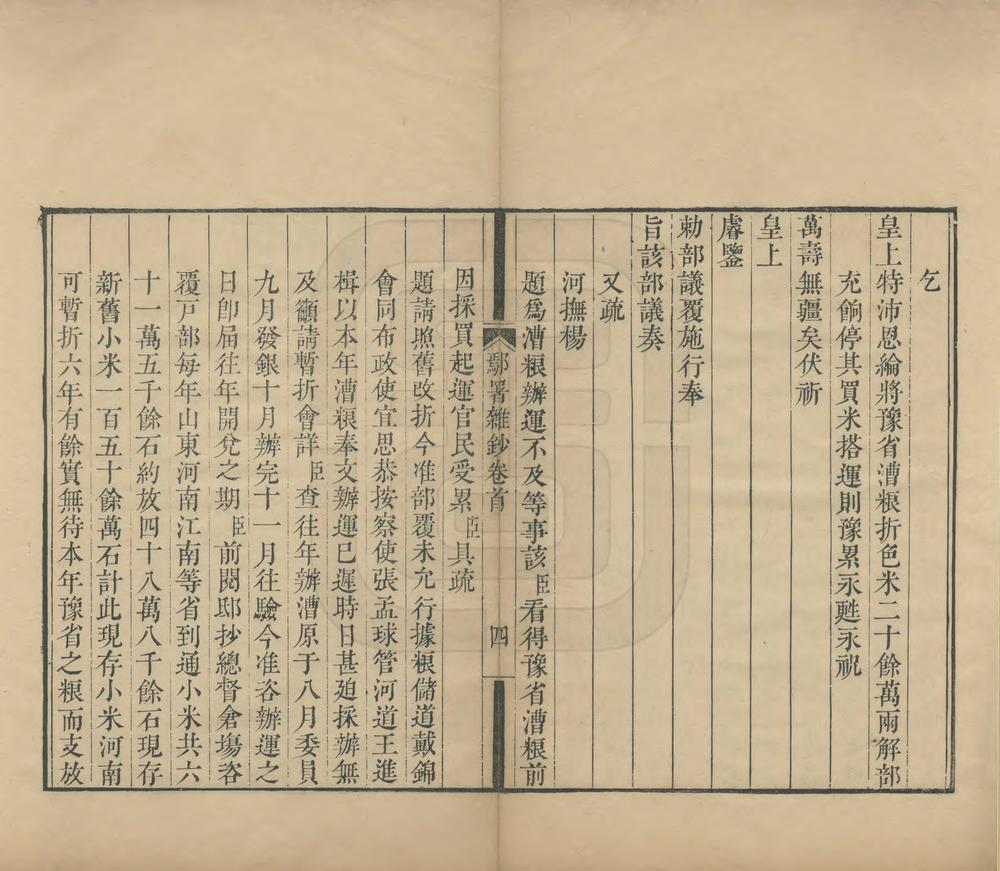 乞
皇上特沛恩綸將豫省漕粮折色米二十餘萬兩解部
充餉停其買米搭運則豫累永甦永祝
萬壽無疆矣伏祈
皇上
睿鑒
勅部議覆施行奉
旨該部議奏
又疏
河撫楊
題爲漕粮辦運不及等事該臣看得豫省漕粮前
鄢署雜鈔卷首 四
因採買起運官民受累臣具疏
題請照舊改折今准部覆未允行據粮儲道戴錦
會同布政使宜思恭按察使張孟球管河道王進
楫以本年漕粮奉文辦運已遲時日甚廹採辦無
及籲請暫折會詳臣查往年辦漕原于八月委員
九月發銀十月辦完十一月往驗今准咨辦運之
日卽届往年開兌之期臣前閱邸抄總督倉塲咨
覆戸部每年山東河南江南等省到通小米共六
十一萬五千餘石約放四十八萬八千餘石現存
新舊小米一百五十餘萬石計此現存小米河南
可暫折六年有餘實無待本年豫省之粮而支放